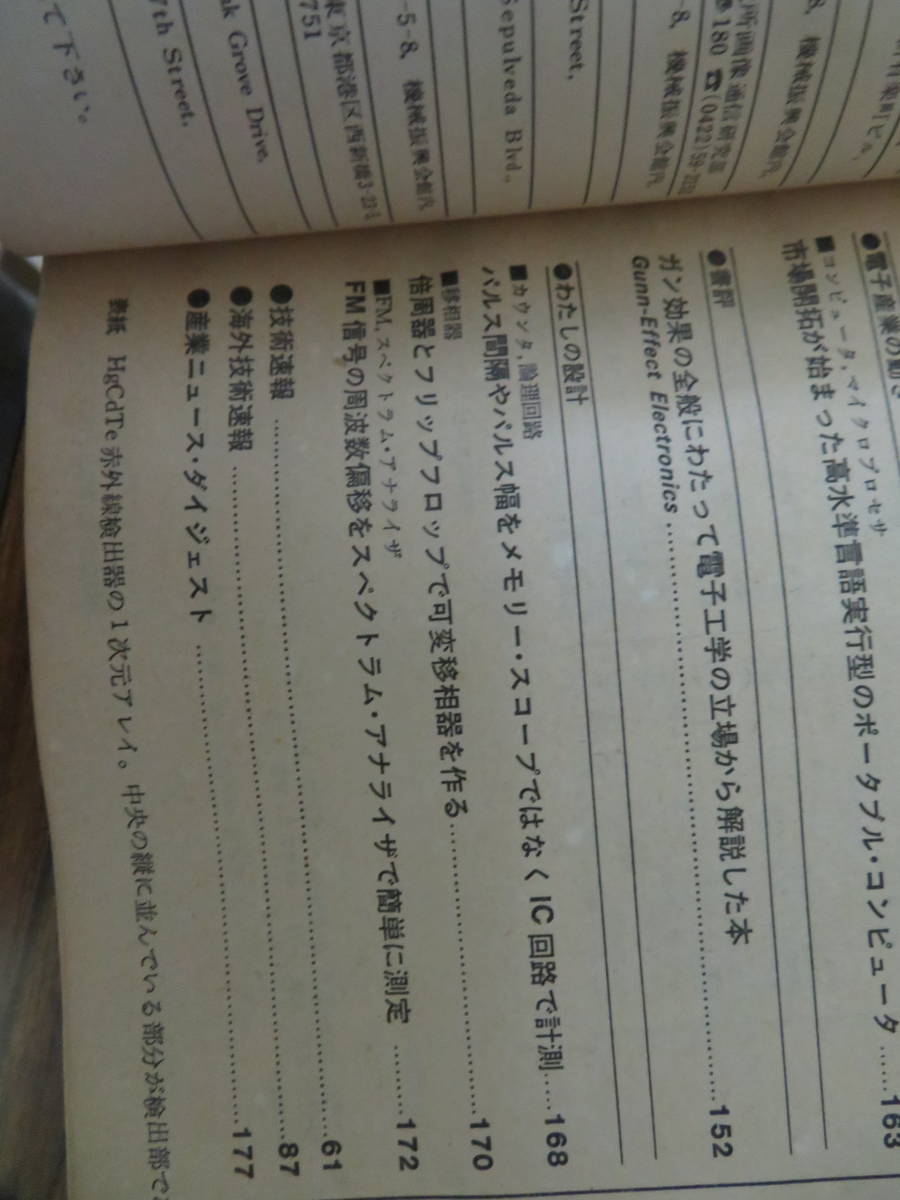 町有楽町ビル,
8, 機械振興会館内,
所画像通信研究部
180 ☎(0422)59-
-8, 機械振興会館内,
Street,
Sepulveda Blvd.,
-5-8, 機械振興会館内
東京都港区西新橋3-23-
751
k Grove Drive,
7th Street,
て下さい。
●電子産業の動き
■コンピュータ, マイクロプロセサ
市場開拓が始まった高水準言語実行型のポータブル・コンピュータ ……163
●書評
ガン効果の全般にわたって電子工学の立場から解説した本
Gunn-Effect Electronics ……152
●わたしの設計
■カウンタ, 論理回路
パルス間隔やパルス幅をメモリー・スコープではなくIC回路で計測……168
■移相器
倍周器とフリップフロップで可変移相器を作る……170
■FM, スペクトラム・アナライザ
FM信号の周波数偏移をスペクトラム・アナライザで簡単に測定 ……172
●技術速報 ……61
●海外技術速報 ……87
●産業ニュース・ダイジェスト ……177
表紙 HgCdTe赤外線検出器の1次元アレイ。中央の縦に並んでいる部分が検出部で